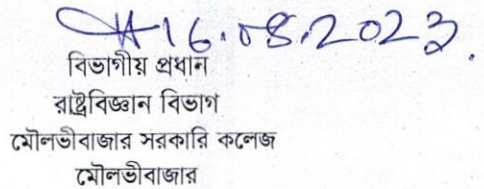 16.08.2023
বিভাগীয় প্রধান
রাষ্ট্রবিজ্ঞান বিভাগ
মৌলভীবাজার সরকারি কলেজ
মৌলভীবাজার